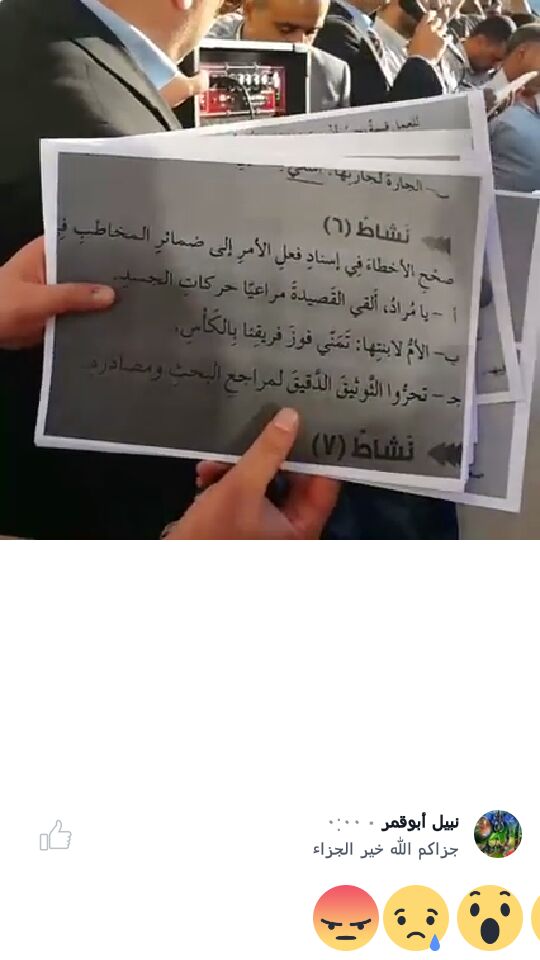 الجارة لجارتها:
نَشاطٌ (٦)
صحّحِ الأخطاءَ فِي إسنادِ فعلِ الأمرِ إلى ضمائرِ المخاطَبِ فِي
أ - يا مُرادُ، ألقي القَصيدةَ مراعيًا حركاتِ الجسدِ.
ب- الأمُّ لابنتِها: تَمَنِّي فوزَ فريقِنا بِالكَأْسِ.
جـ - تحرُّوا التَّوثيقَ الدَّقيقَ لمراجعِ البحثِ ومصادرِهِ.
نَشاطٌ (٧)
نبيل أبوقمر • ٠:٠٠
جزاكم الله خير الجزاء